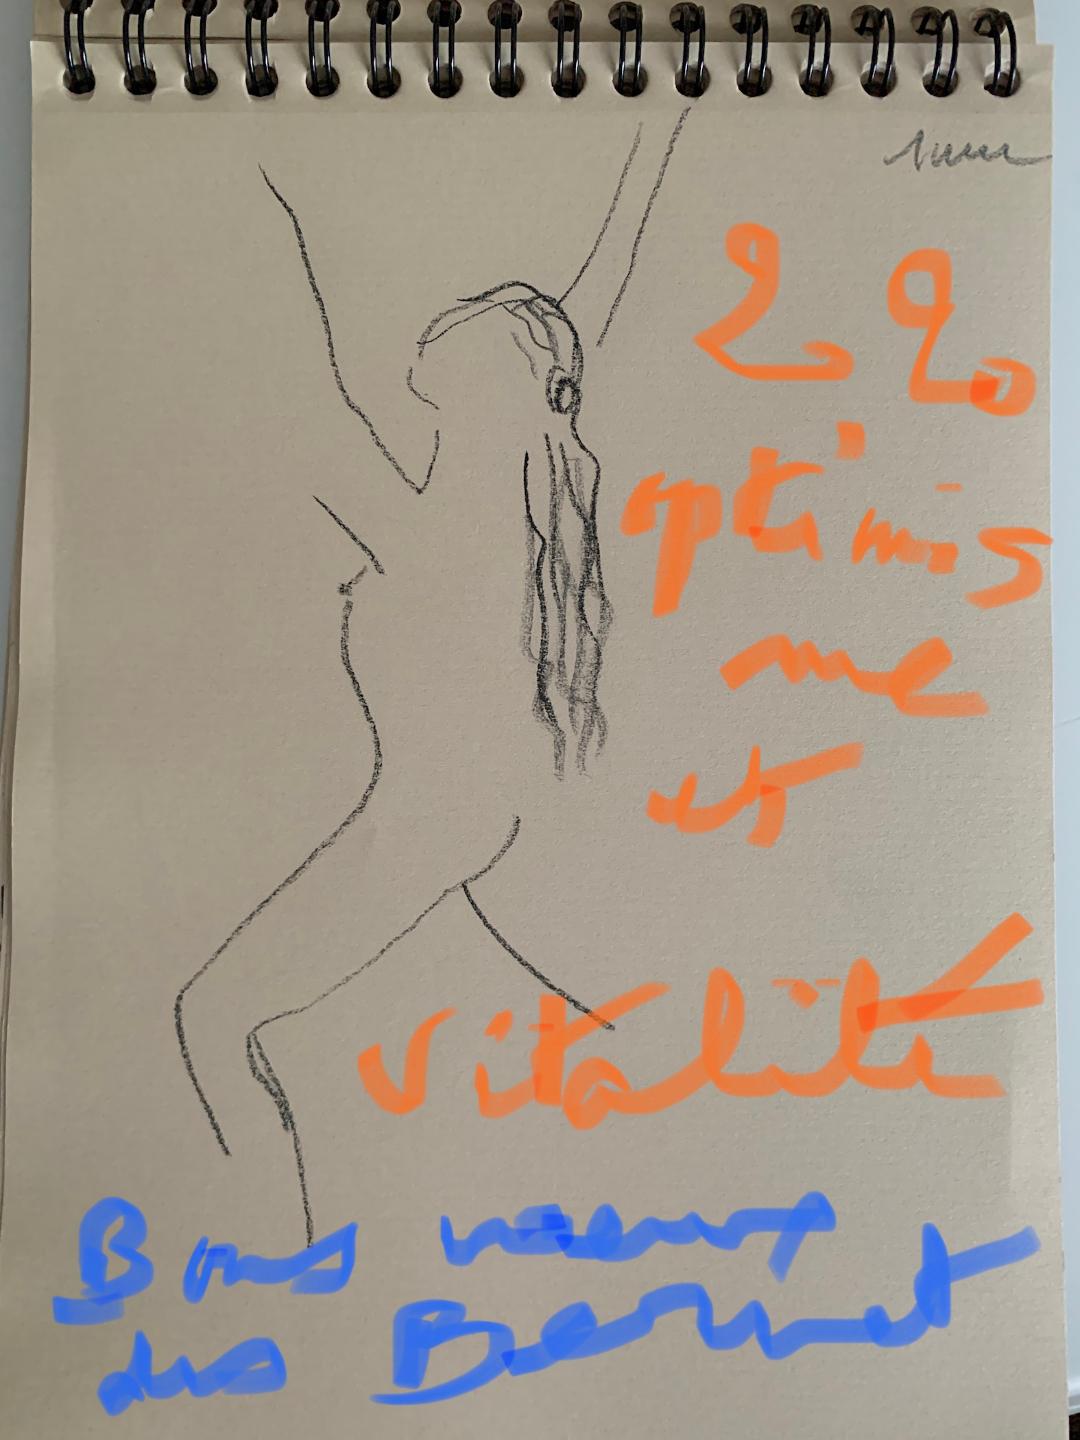 2020
optimis
me
et
vitalité
Bons voeux
des Bernet